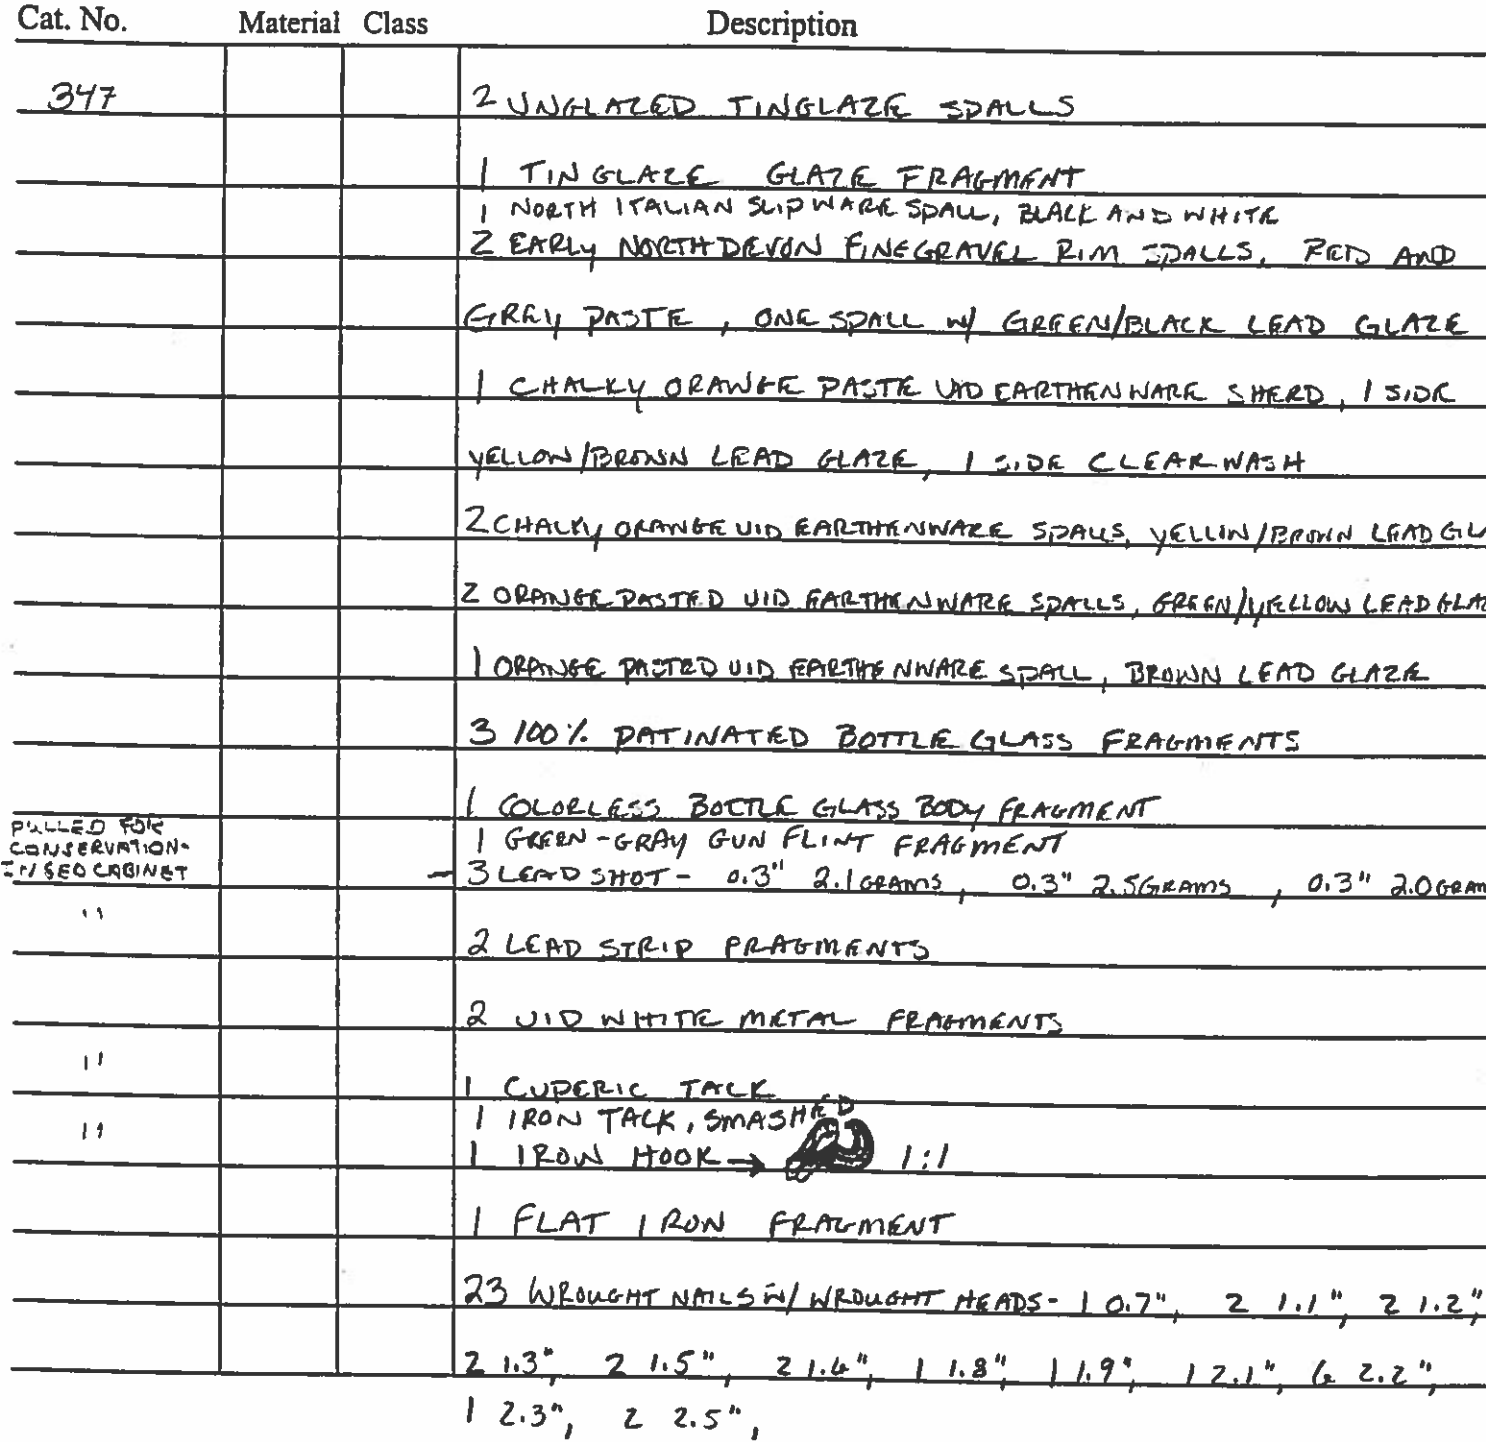 Cat. No. Material Class Description
347 2 UNGLAZED TINGLAZE SPALLS
1 TINGLAZE GLAZE FRAGMENT
1 NORTH ITALIAN SLIPWARE SPALL, BLACK AND WHITE
2 EARLY NORTH DEVON FINE GRAVEL RIM SPALLS, RED AND
GREY PASTE, ONE SPALL W/ GREEN/BLACK LEAD GLAZE
1 CHALKY ORANGE PASTE UID EARTHENWARE SHERD, 1 SIDE
YELLOW/BROWN LEAD GLAZE, 1 SIDE CLEAR WASH
2 CHALKY ORANGE UID EARTHENWARE SPALLS, YELLOW/BROWN LEAD GLA
2 ORANGE PASTED UID EARTHENWARE SPALLS, GREEN/YELLOW LEAD GLAZ
1 ORANGE PASTED UID EARTHENWARE SPALL, BROWN LEAD GLAZE
3 100% PATINATED BOTTLE GLASS FRAGMENTS
1 COLORLESS BOTTLE GLASS BODY FRAGMENT
PULLED FOR
CONSERVATION-
IN SEO CABINET
1 GREEN-GRAY GUN FLINT FRAGMENT
- 3 LEAD SHOT - 0.3" 2.1 GRAMS, 0.3" 2.5 GRAMS, 0.3" 2.0 GRAM
" 2 LEAD STRIP FRAGMENTS
2 UID WHITE METAL FRAGMENTS
" 1 CUPERIC TACK
1 IRON TACK, SMASHED
" 1 IRON HOOK → 1:1
1 FLAT IRON FRAGMENT
23 WROUGHT NAILS W/ WROUGHT HEADS - 1 0.7", 2 1.1", 2 1.2",
2 1.3", 2 1.5", 2 1.6", 1 1.8", 1 1.9", 1 2.1", 6 2.2",
1 2.3", 2 2.5",